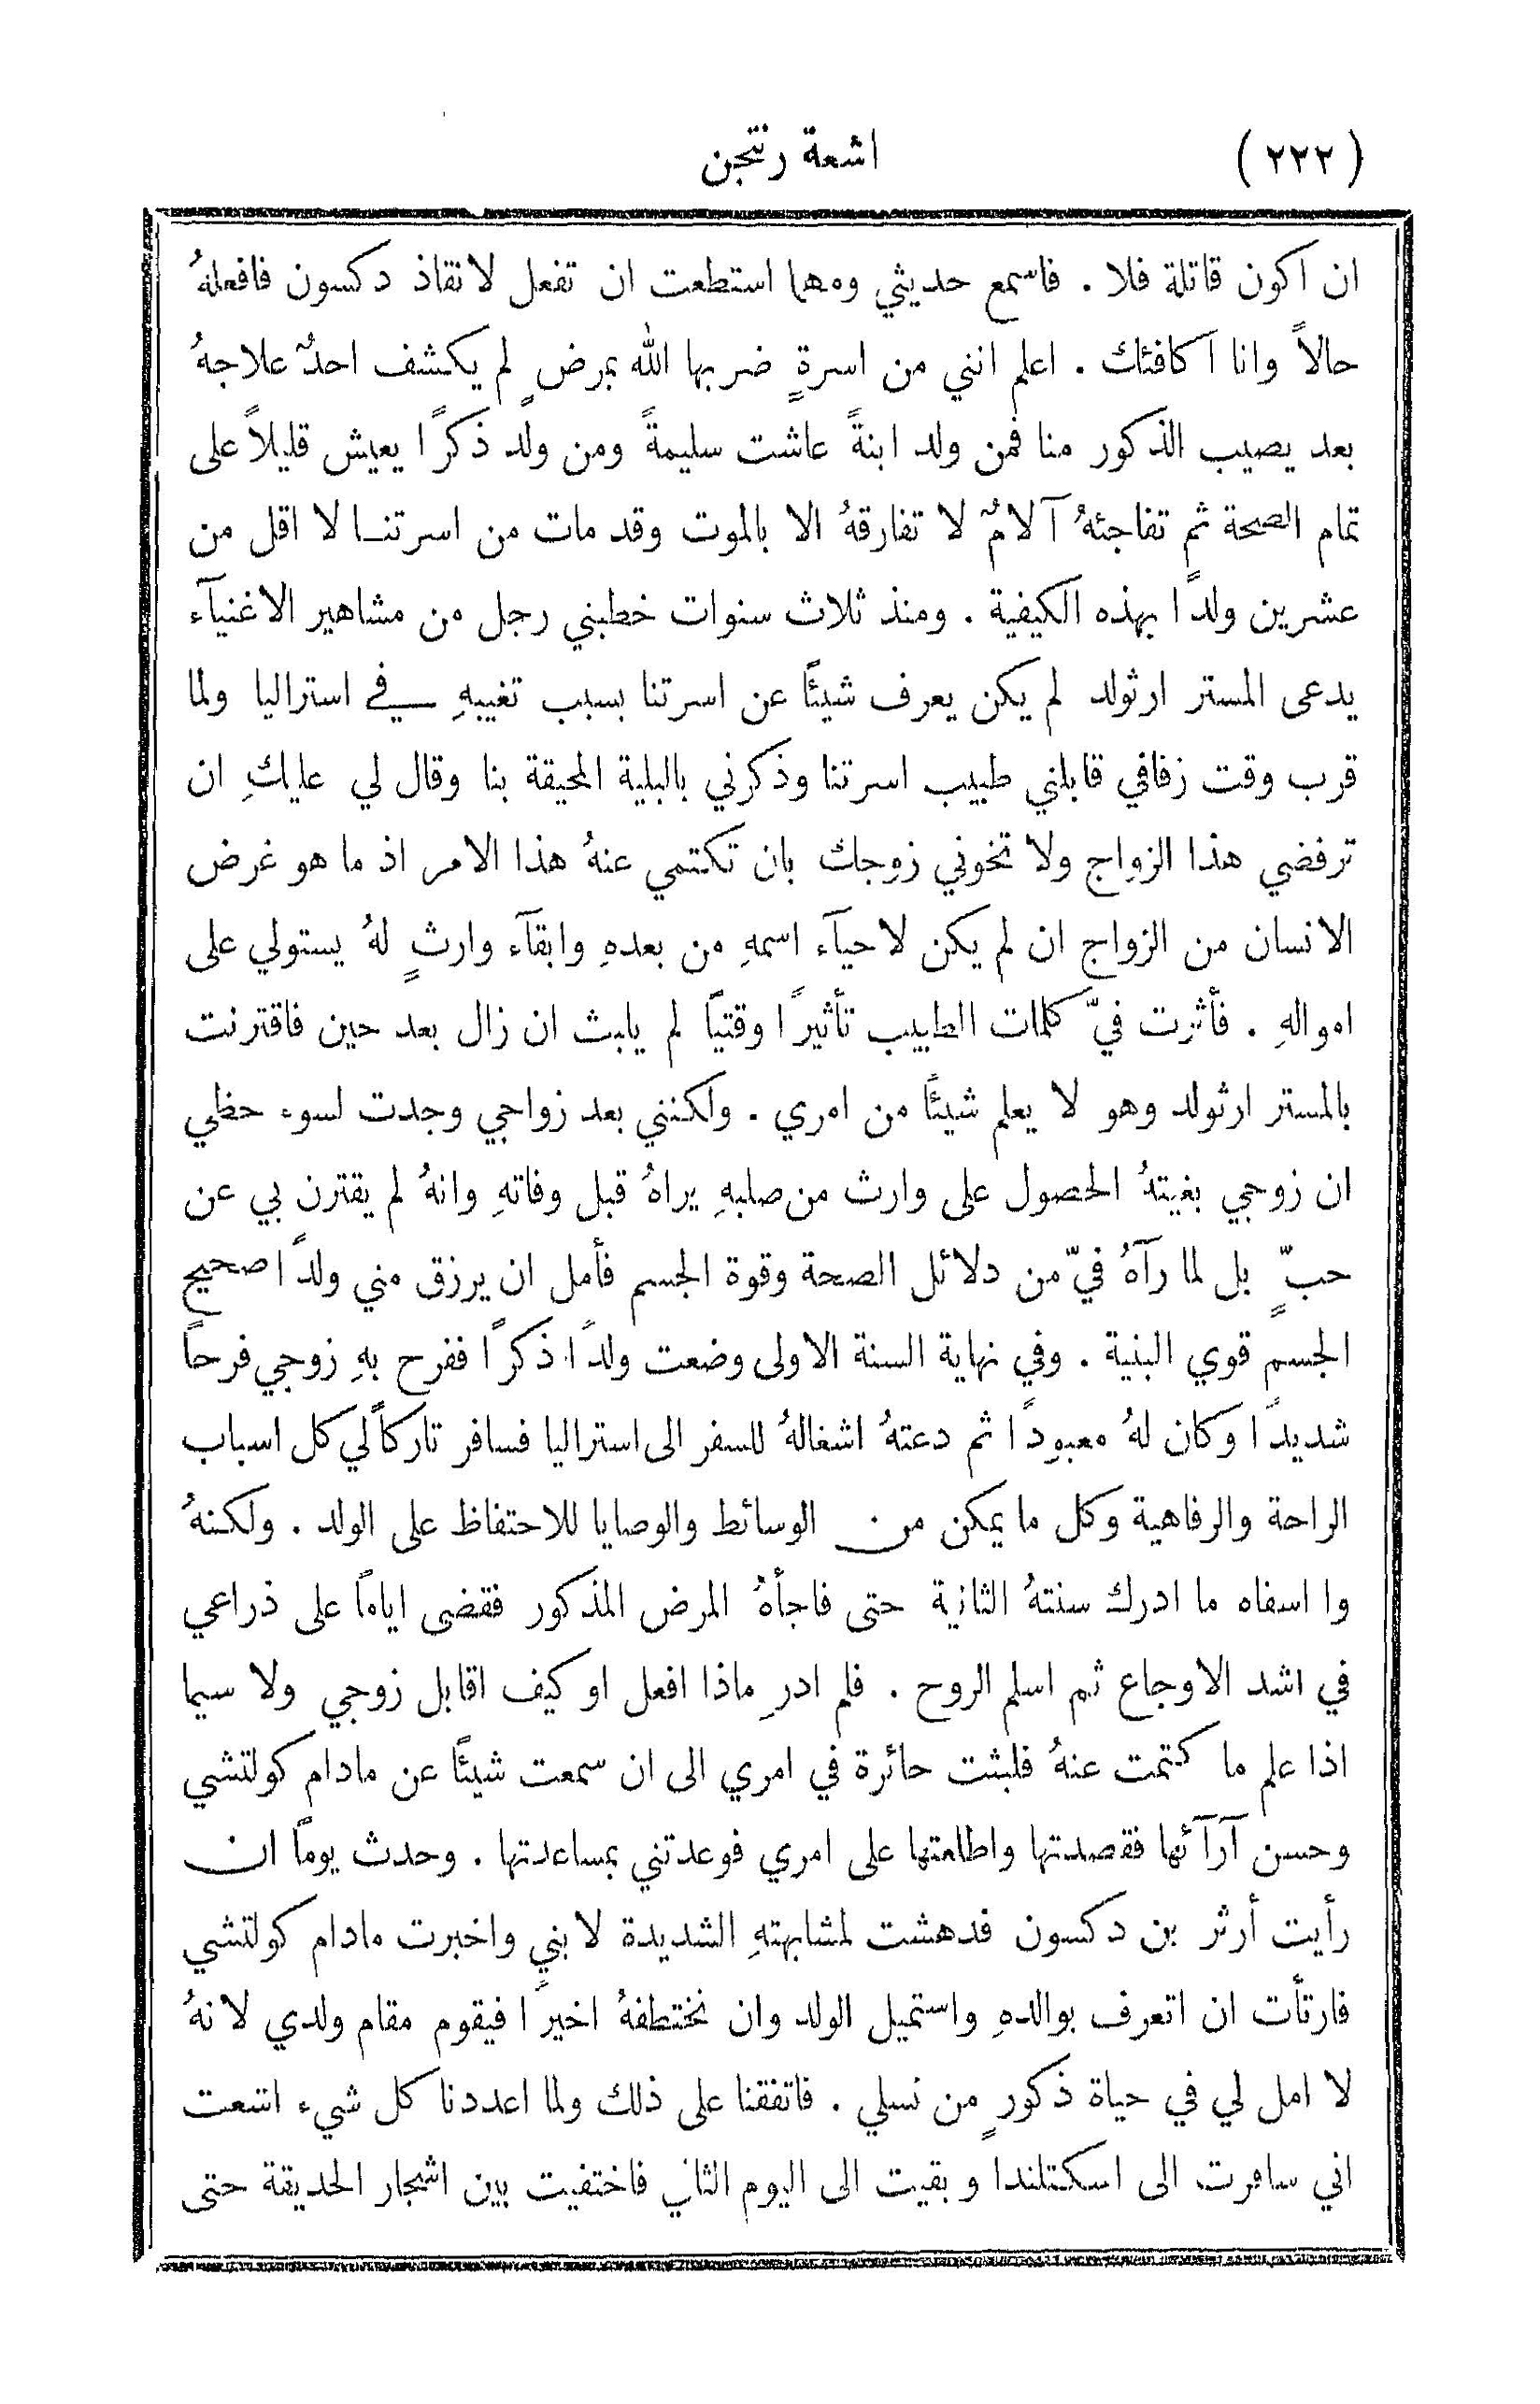 (٢٢٢) اشعة رنتجن
ان اكون قاتلة فلا . فاسمع حديثي ومهما استطعت ان تفعل لانقاذ دكسون فافعلهُ
حالاً وانا اكافئك . اعلم انني من اسرةٍ ضربها الله بمرضٍ لم يكشف احدٌ علاجهُ
بعد يصيب الذكور منا فمن ولد ابنةً عاشت سليمةً ومن ولد ذكرًا يعيش قليلاً على
تمام الصحة ثم تفاجئهُ آلامٌ لا تفارقهُ الا بالموت وقد مات من اسرتنا لا اقل من
عشرين ولدًا بهذه الكيفية . ومنذ ثلاث سنوات خطبني رجل من مشاهير الاغنيآء
يدعى المستر ارثولد لم يكن يعرف شيئًا عن اسرتنا بسبب تغيبهِ في استراليا ولما
قرب وقت زفافي قابلني طبيب اسرتنا وذكرني بالبلية المحيقة بنا وقال لي عليكِ ان
ترفضي هذا الزواج ولا تخوني زوجك بان تكتمي عنهُ هذا الامر اذ ما هو غرض
الانسان من الزواج ان لم يكن لاحيآء اسمهِ من بعدهِ وابقآء وارثٍ لهُ يستولي على
اموالهِ . فأثرت فيّ كلمات الطبيب تأثيرًا وقتيًا لم يلبث ان زال بعد حين فاقترنت
بالمستر ارثولد وهو لا يعلم شيئًا من امري . ولكنني بعد زواجي وجدت لسوء حظي
ان زوجي بغيتهُ الحصول على وارث من صلبهِ يراهُ قبل وفاتهِ وانهُ لم يقترن بي عن
حبٍّ بل لما رآهُ فيّ من دلائل الصحة وقوة الجسم فأمل ان يرزق مني ولدًا صحيح
الجسم قوي البنية . وفي نهاية السنة الاولى وضعت ولدًا ذكرًا ففرح بهِ زوجي فرحًا
شديدًا وكان لهُ معبودًا ثم دعتهُ اشغالهُ للسفر الى استراليا فسافر تاركًا لي كل اسباب
الراحة والرفاهية وكل ما يمكن من الوسائط والوصايا للاحتفاظ على الولد . ولكنهُ
وا اسفاه ما ادرك سنتهُ الثانية حتى فاجأهُ المرض المذكور فقضى ايامًا على ذراعي
في اشد الاوجاع ثم اسلم الروح . فلم ادرِ ماذا افعل او كيف اقابل زوجي ولا سيما
اذا علم ما كتمت عنهُ فلبثت حائرة في امري الى ان سمعت شيئًا عن مادام كولتشي
وحسن آرآئها فقصدتها واطلعتها على امري فوعدتني بمساعدتها . وحدث يومًا ان
رأيت أرثر بن دكسون فدهشت لمشابهتهِ الشديدة لابني واخبرت مادام كولتشي
فارتأت ان اتعرف بوالدهِ واستميل الولد وان نختطفهُ اخيرًا فيقوم مقام ولدي لانهُ
لا امل لي في حياة ذكورٍ من نسلي . فاتفقنا على ذلك ولما اعددنا كل شيء اشعت
اني سافرت الى اسكتلندا وبقيت الى اليوم الثاني فاختفيت بين اشجار الحديقة حتى